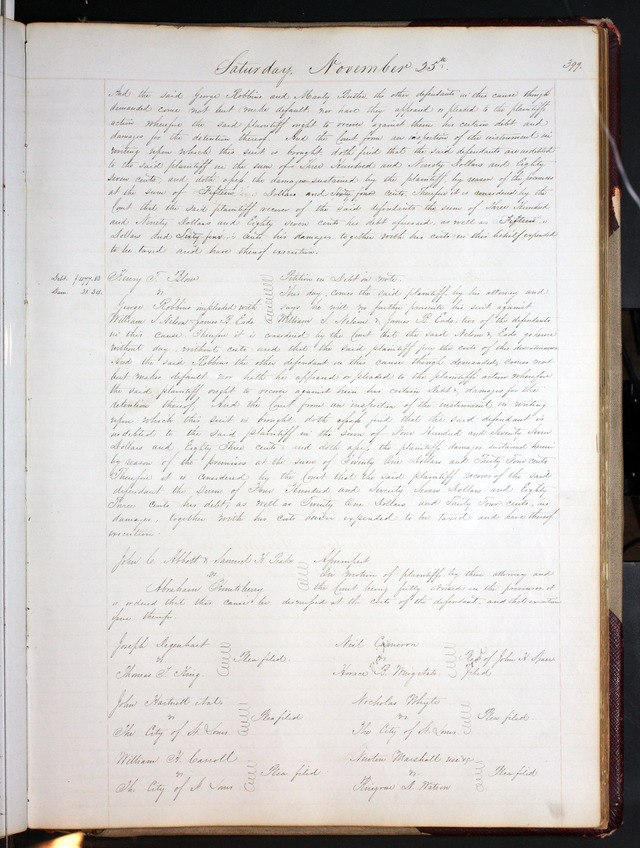 Saturday, November 25th.
399.
And the said George Robbins and Manly Butler the other defendants in this cause though
demanded come not but make default nor have they appeared or pleaded to the plaintiffs
action wherefore the said plaintiff ought to recover against them his certain debt and
damages for the detention thereof. And the Court from an inspection of the instrument in
writing upon which this suit is brought doth find that the said defendants are indebted
to the said plaintiff in the sum of Three Hundred and Ninety Dollars and Eighty
seven cents; and doth assess the damages sustained by the plaintiff by reason of the premises
at the sum of Fifteen Dollars and Sixty four cents. Therefore it is considered by the
Court that the said plaintiff recover of the said defendants the sum of Three Hundred
and Ninety Dollars and Eighty seven cents his debt aforesaid, as well as Fifteen
Dollars and Sixty four Cents his damages, together with his costs in this behalf expended
to be taxed and have thereof execution.
Debt. $477.83
Dam 21.34
Henry T. Blow
vs
George Robbins impleaded with
William S. Nelson & James B. Eads
Petition in Debt on Note.
This day comes the said plaintiff by his attorney and
says he will no further prosecute his suit against
William S. Nelson & James B. Eads, two of the defendants
in this cause. Therefore it is considered by the Court that the said Nelson & Eads go hence
without day, without costs and that the said plaintiff pay the costs of this
And the said Robbins the other defendant in this cause though demanded, comes not
but makes default, nor hath he appeared or pleaded to the plaintiffs action wherefore
the said plaintiff ought to recover against him his certain debt & damages for the
detention thereof. And the Court from an inspection of the instrument in writing
upon which this suit is brought, doth find that the said defendant is
indebted to the said plaintiff in the sum of Four Hundred and Seventy Seven
Dollars and Eighty Three cents; and doth assess the plaintiffs damages sustained herein
by reason of the premises at the sum of Twenty One Dollars and Thirty Four cents.
Therefore it is considered by the Court that the said plaintiff recover of the said
defendant the sum of Four Hundred and Seventy Seven Dollars and Eighty
Three cents his debt, as well as Twenty One Dollars and Thirty Four cents, his
damages, together with his costs herein expended to be taxed and have thereof
execution.
John C. Abbott & Samuel H. Peake
vs
Abraham
Assumpsit
On Motion of plaintiffs by their attorney and
the Court being fully advised in the premises it
is ordered that this cause be dismissed at the costs of the defendant, and that execution
issue therefor.
Joseph Segenhart
vs.
Thomas F. King
Plea filed.
Neil Cameron
vs
Horace B.
of John H.
filed
John Hartnett Nat.
vs
The City of St. Louis.
Plea filed
Nicholas Whyte
vs
The City of St. Louis.
Plea filed.
William H. Carroll
vs
The City of St Louis
Plea filed
Newton Marshall use &c
vs
A. Watson
Plea filed